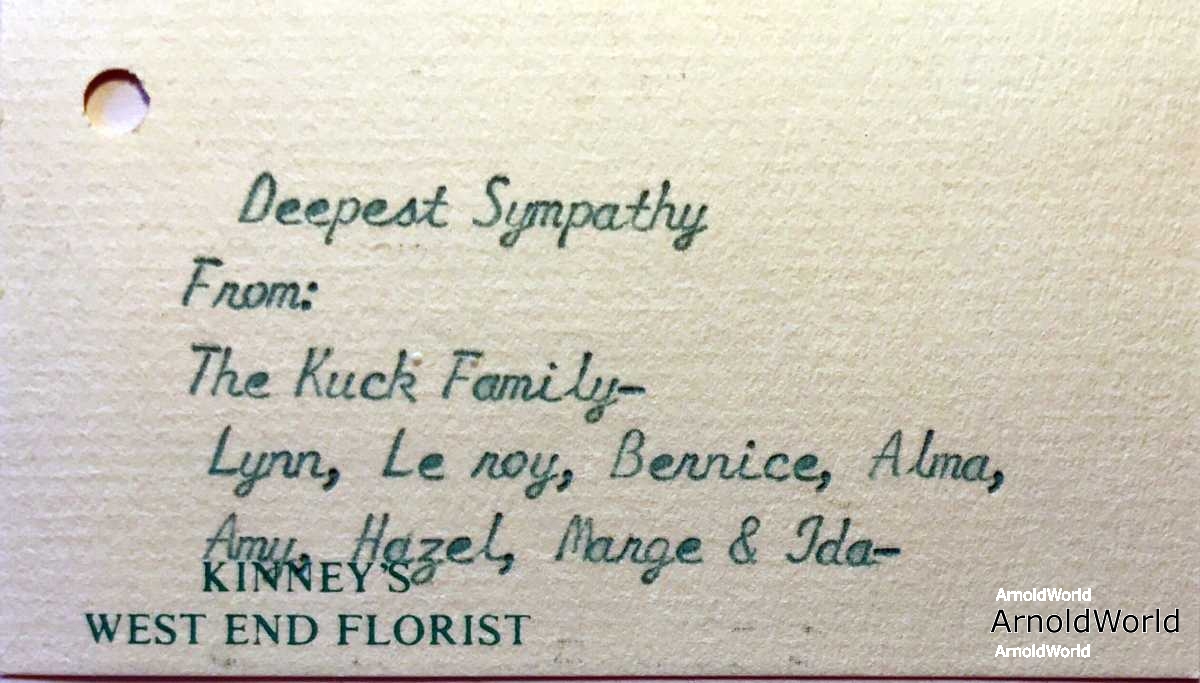 Deepest Sympathy
From:
The Kuck Family-
Lynn, Le roy, Bernice, Alma,
Amy, Hazel, Marge & Ida-
KINNEY'S
WEST END FLORIST
ArnoldWorld
ArnoldWorld
ArnoldWorld